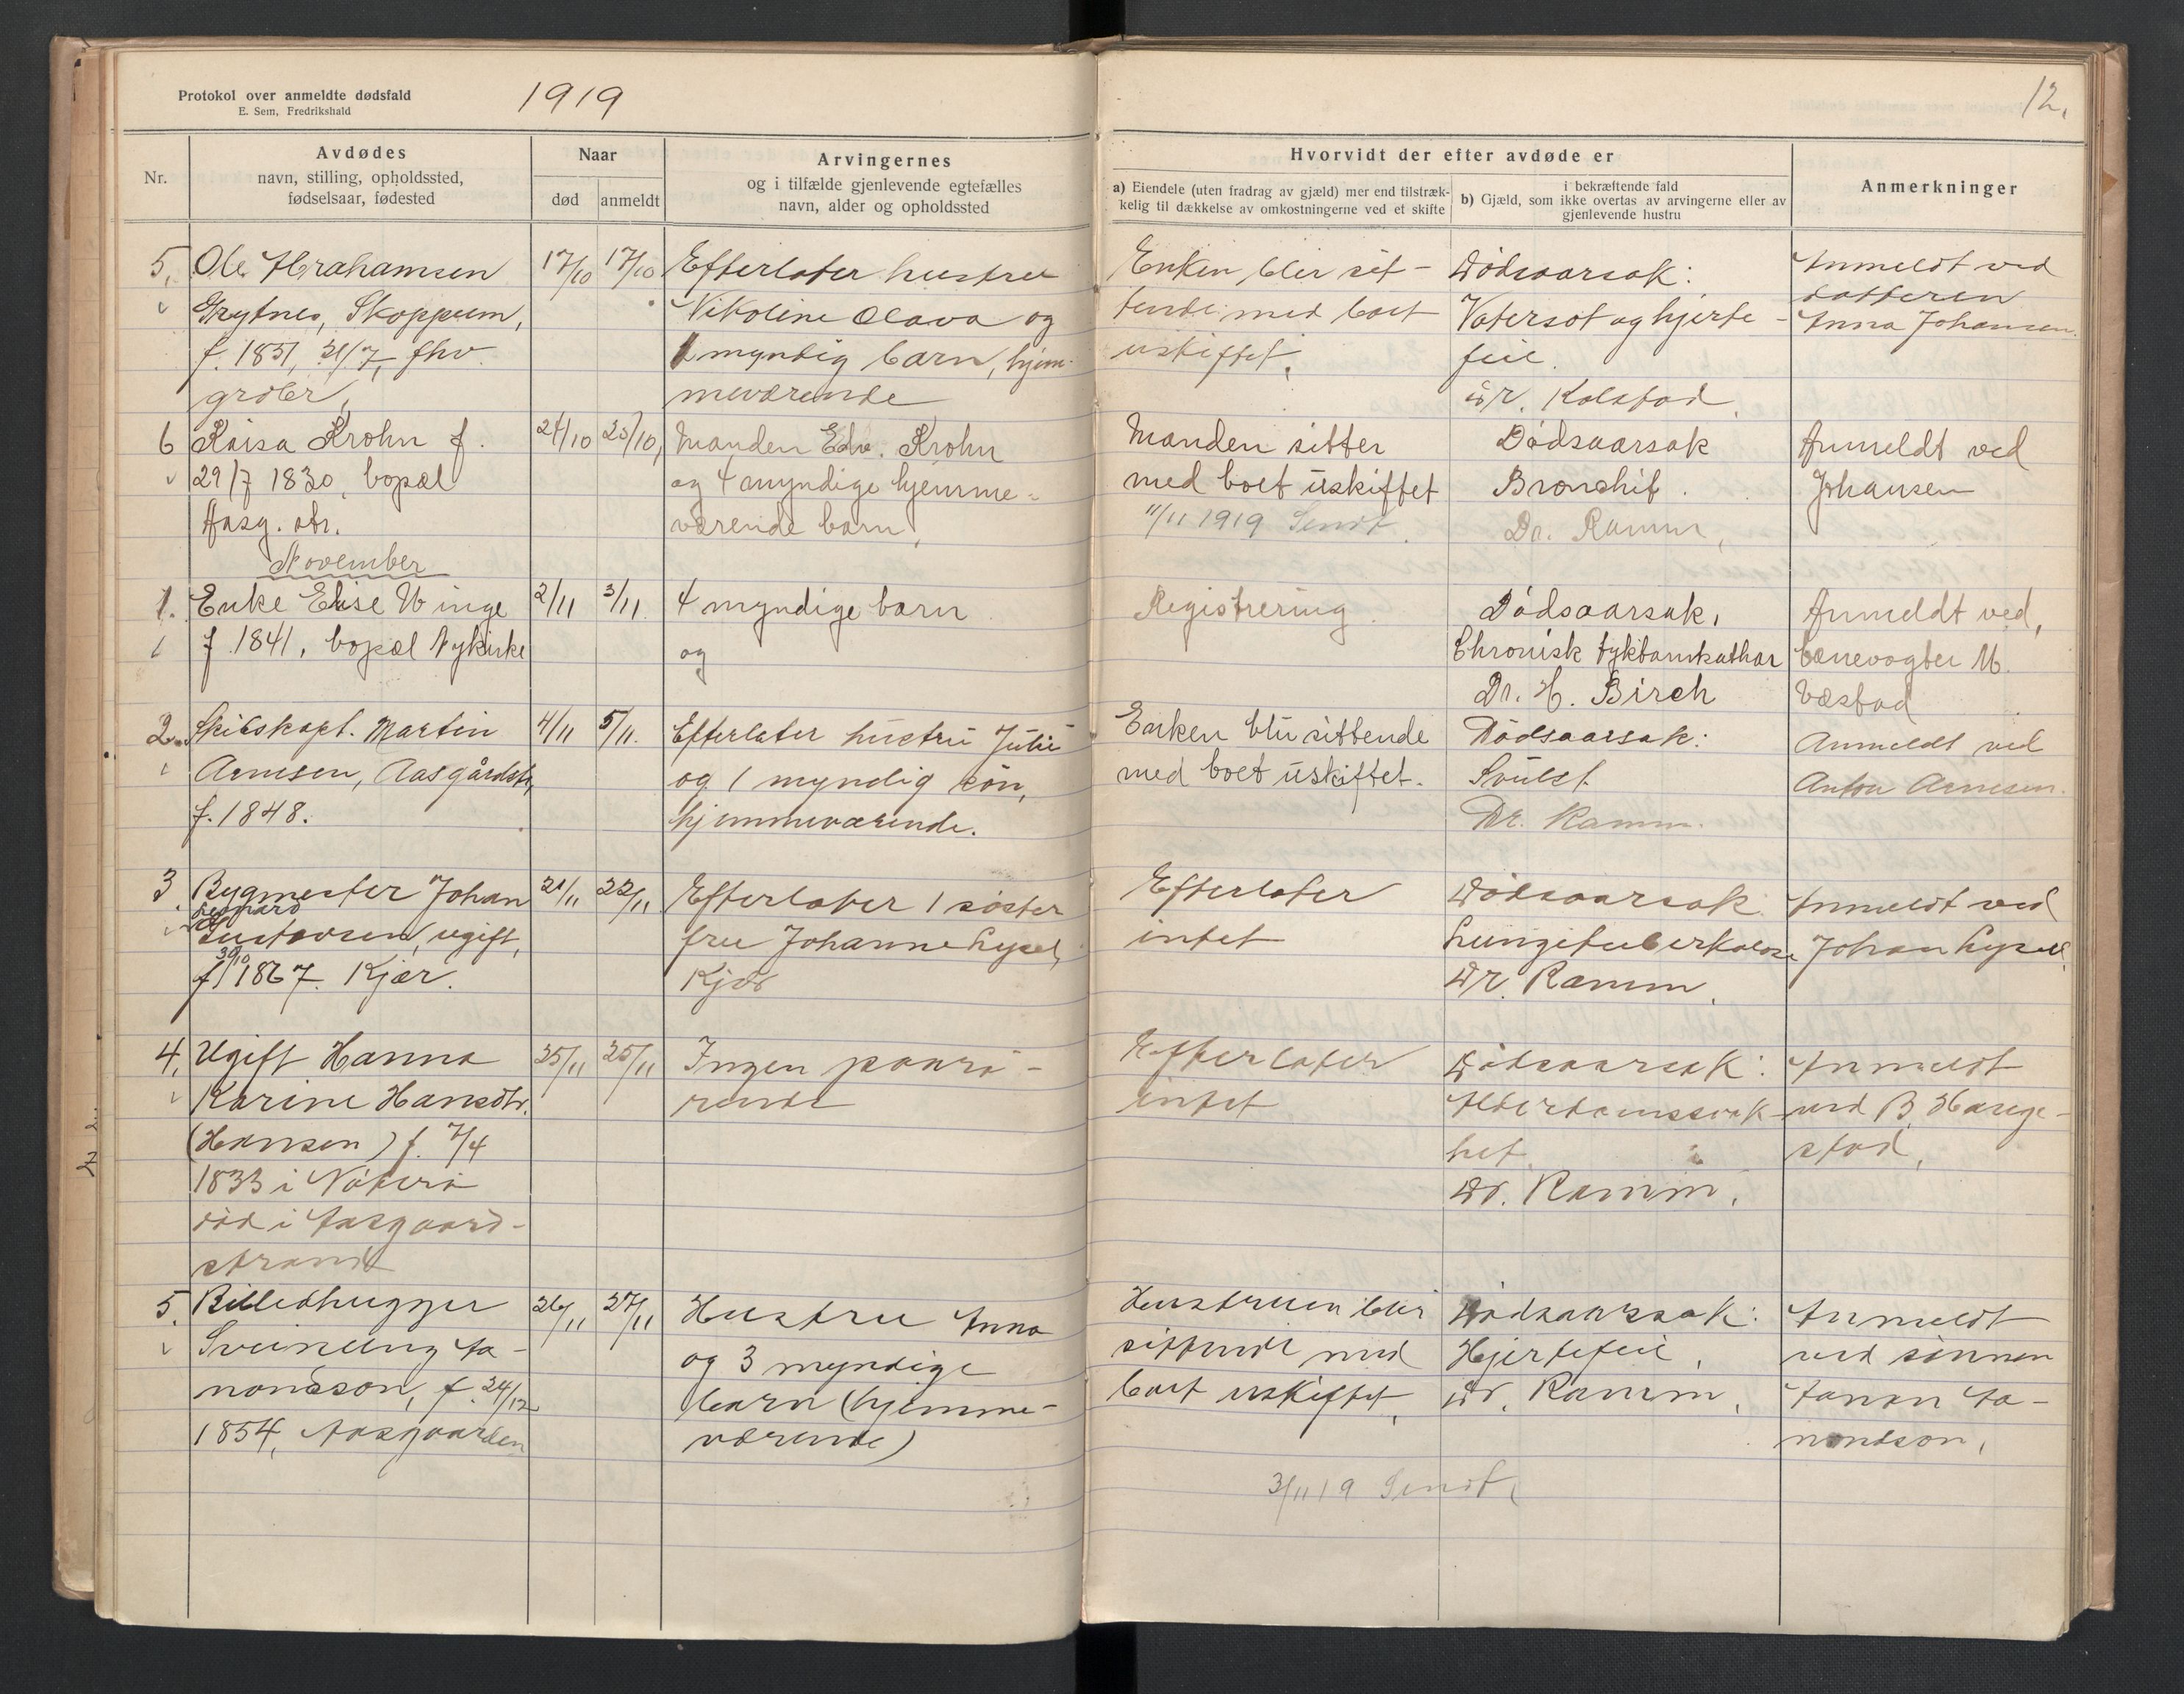 Protokol over anmeldte dødsfald
E. Sem, Fredrikshald
1919
12.
Nr.
Avdødes
navn, stilling, opholdssted,
fødselsaar, fødested
Naar
død
anmeldt
Arvingernes
og i tilfælde gjenlevende egtefælles
navn, alder og opholdssted
Hvorvidt der efter avdøde er
a) Eiendele (uten fradrag av gjæld) mer end tilstræk-
kelig til dækkelse av omkostningerne ved et skifte
i bekræftende fald
b) Gjæld, som ikke overtas av arvingerne eller av
gjenlevende hustru
Anmerkninger
5.
Ole Abrahamsen
Grytnes, Skoppum,
f. 1851, 31/7, fhv.
17/10
17/10
Efterlater hustru
Nikoline Olava og
myndig barn, hjem-
meværende
Enken blir sit-
tende med boet
uskiftet.
Dødsaarsak:
Vatersot og hjerte-
feil.
Dr. Kolstad.
Anmeldt ved
datteren
Anna Johansen.
6
Raisa Krohn f.
29/7 1830, bopæl
Aasg. str.
24/10
25/10,
Manden Edv. Krohn
og 4 myndige hjemme-
værende barn,
Manden sitter
med boet uskiftet
11/11 1919 Sendt.
Dødsaarsak
Bronchit.
Dr. Ramm,
Anmeldt ved
Johansen
November
1.
Enke Elise Winge
f. 1841, bopæl Nykirke
2/11
3/11.
4 myndige barn
og
Registrering.
Dødsaarsak,
Chronisk tyktarmkathar
Dr. H. Birch
Anmeldt ved,
banevogter M.
Væstad
2.
Skibskapt. Martin
Arnesen, Aasgårdstr,
f. 1848.
4/11
5/11.
Efterlater hustru Julie
og 1 myndig søn,
hjemmeværende.
Enken bli sittende
med boet uskiftet.
Dødsaarsak:
Svulst.
Dr. Ramm.
Anmeldt ved
Anton Arnesen.
3.
Bygmester Johan
Gustavsen, ugift,
f. 30/10 1867. Kjær.
21/11
22/11
Efterlater 1 søster
fru Johanne Lysell,
Kjær
Efterlater
intet
Dødsaarsak.
Lungetuberkulose
Dr. Ramm.
Anmeldt ved
Johan Lysell.
4.
Ugift Hanna
Karine Hansdtr.
(Hansen) f. 7/4
1833 i Nøterø
død i Aasgaard-
strand
25/11
25/11
Ingen paarø-
rende
Efterlater
intet
Dødsaarsak:
Alderdomssvak-
het
Dr. Ramm.
Anmeldt
ved B. Hauge-
stad.
5.
Billedhugger
Sveinung Aa-
nondsson, f. 24/12
1854, Aasgaarden
26/11
27/11
Hustru Anna
og 3 myndige
barn (hjemme-
værende)
Hustruen blir
sittende med
boet uskiftet,
Dødsaarsak:
Hjertefeil,
Dr. Ramm,
Anmeldt
ved sønnen
Aanon Aa-
nondson,
3/11 19 Sendt,